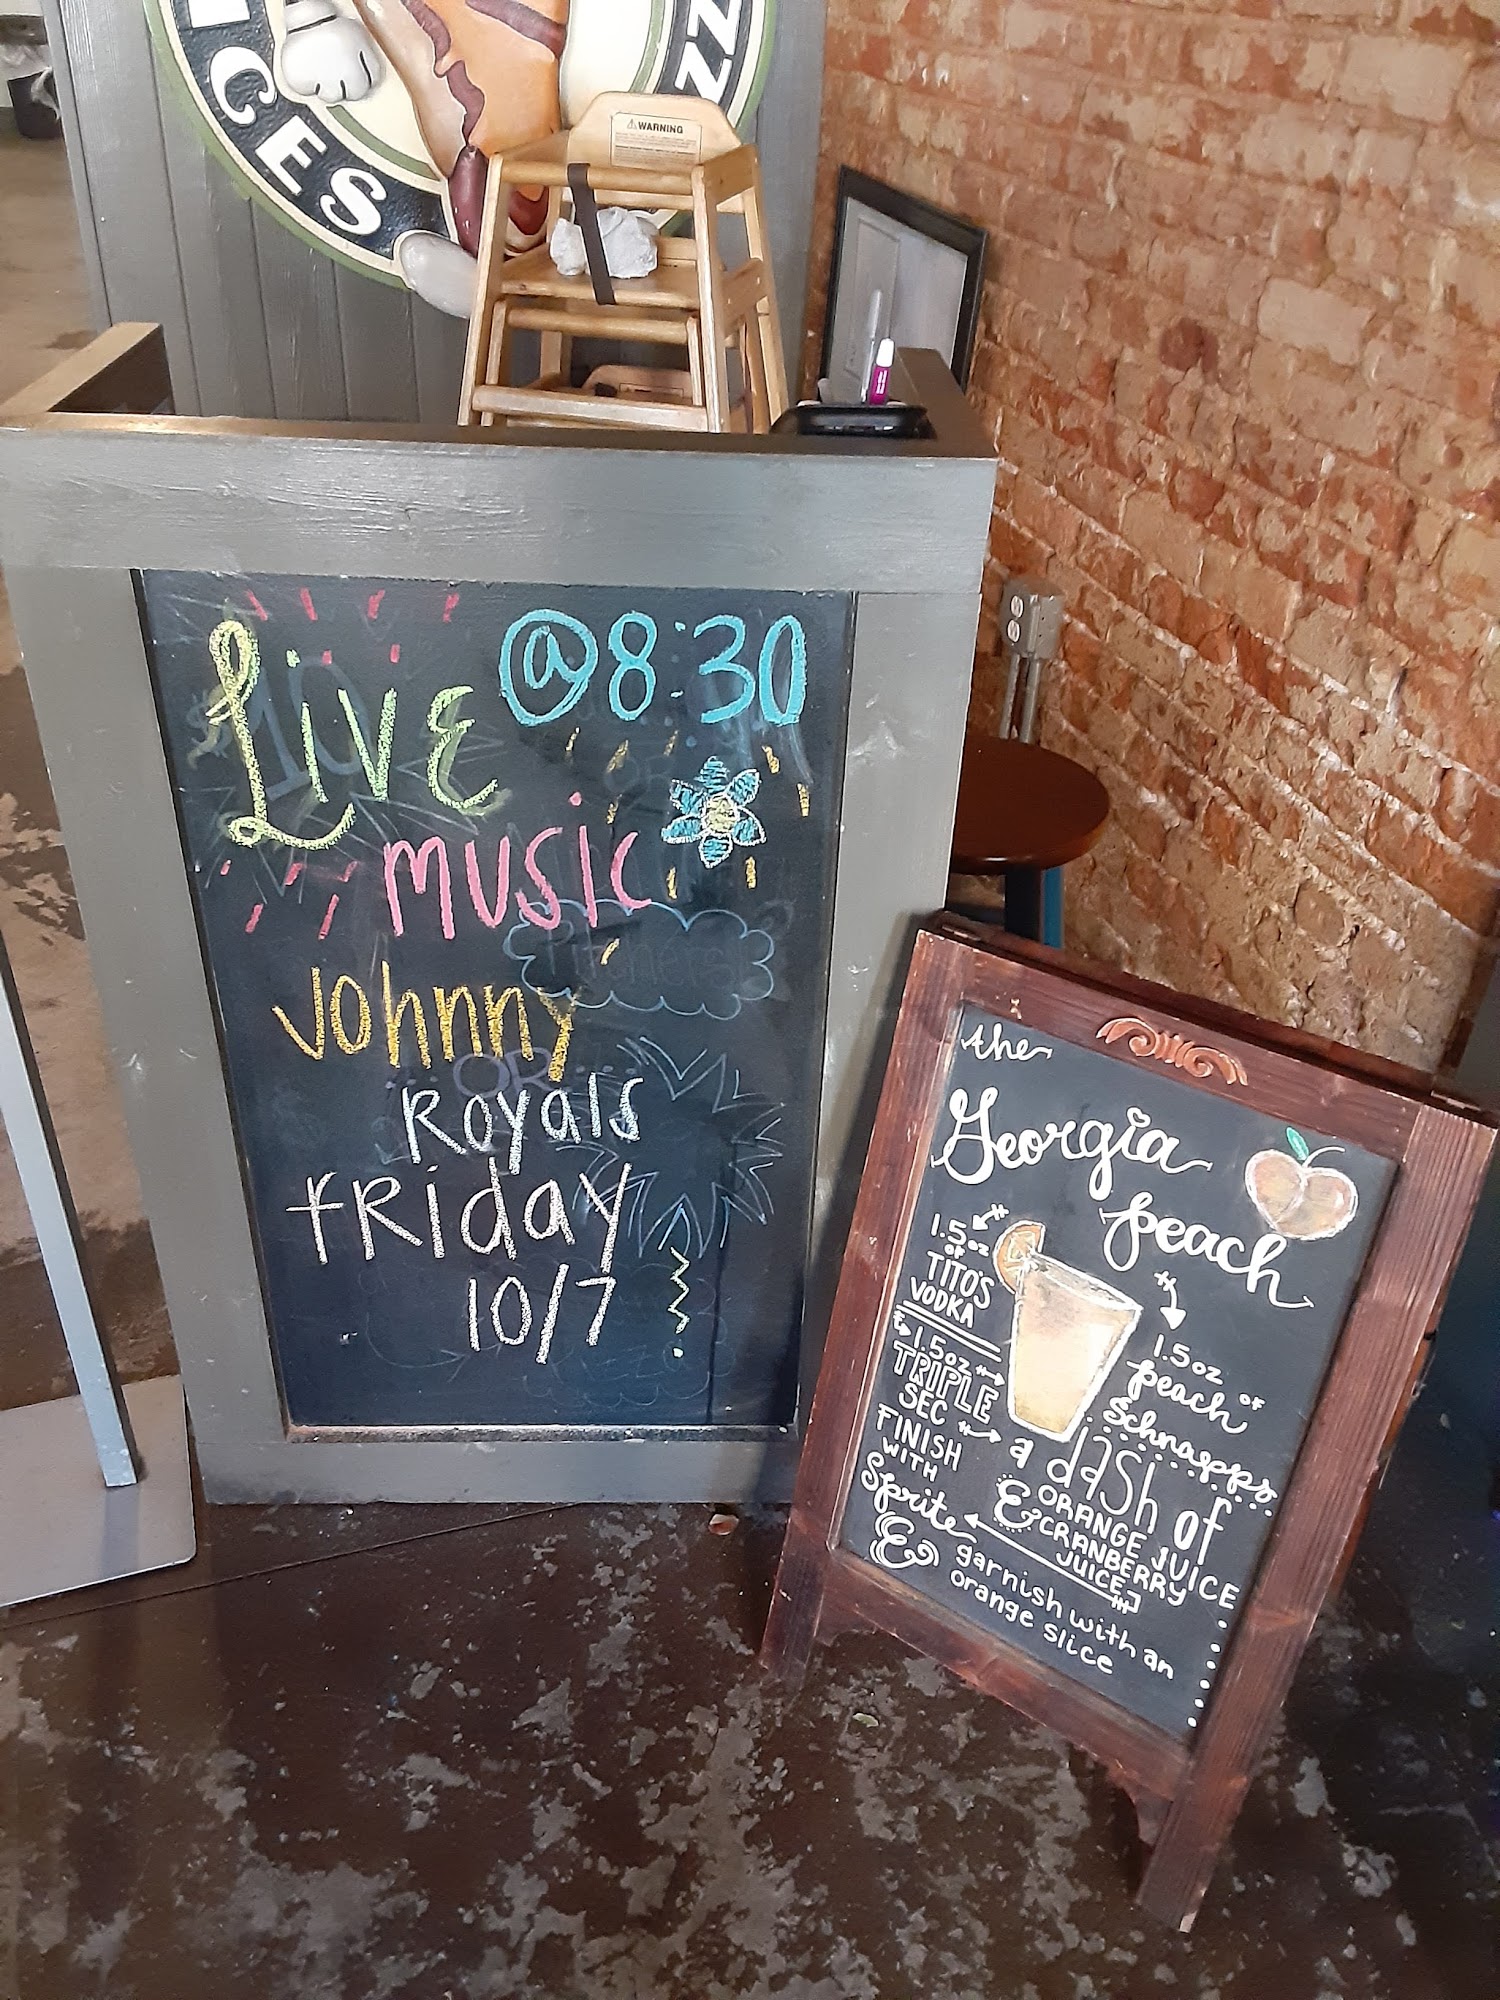 ICES
ZZ
WARNING
Live @8:30
MUSIC
Johnny
Royals
FRiday
10/7
the
Georgia
peach
1.5oz
OF
TITO'S
VODKA
1.5oz
TRIPLE
SEC
FINISH
WITH
Sprite
&
garnish with an
orange slice
1.5oz OF
peach
Schnapps
a dash of
ORANGE JUICE
& CRANBERRY
JUICE